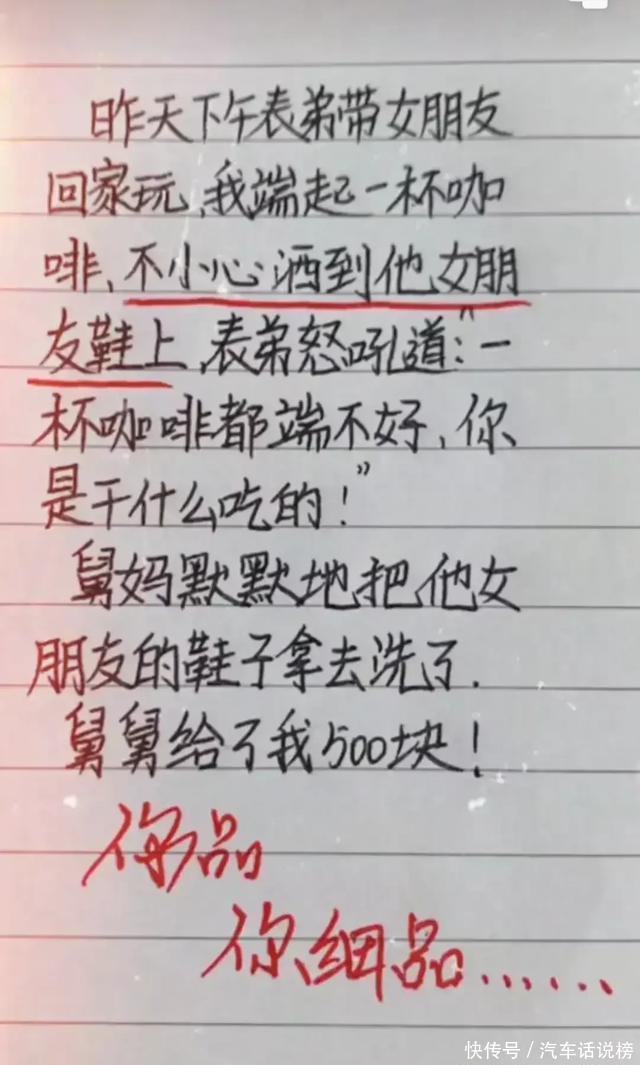 昨天下午表弟带女朋友
回家玩,我端起一杯咖
啡、不小心洒到他女朋
友鞋上,表弟怒吼道:"一
杯咖啡都端不好,你
是干什么吃的!"
舅妈默默地把他女
朋友的鞋子拿去洗了.
舅舅给了我500块!
你品
你细品......
快传号/汽车话说榜